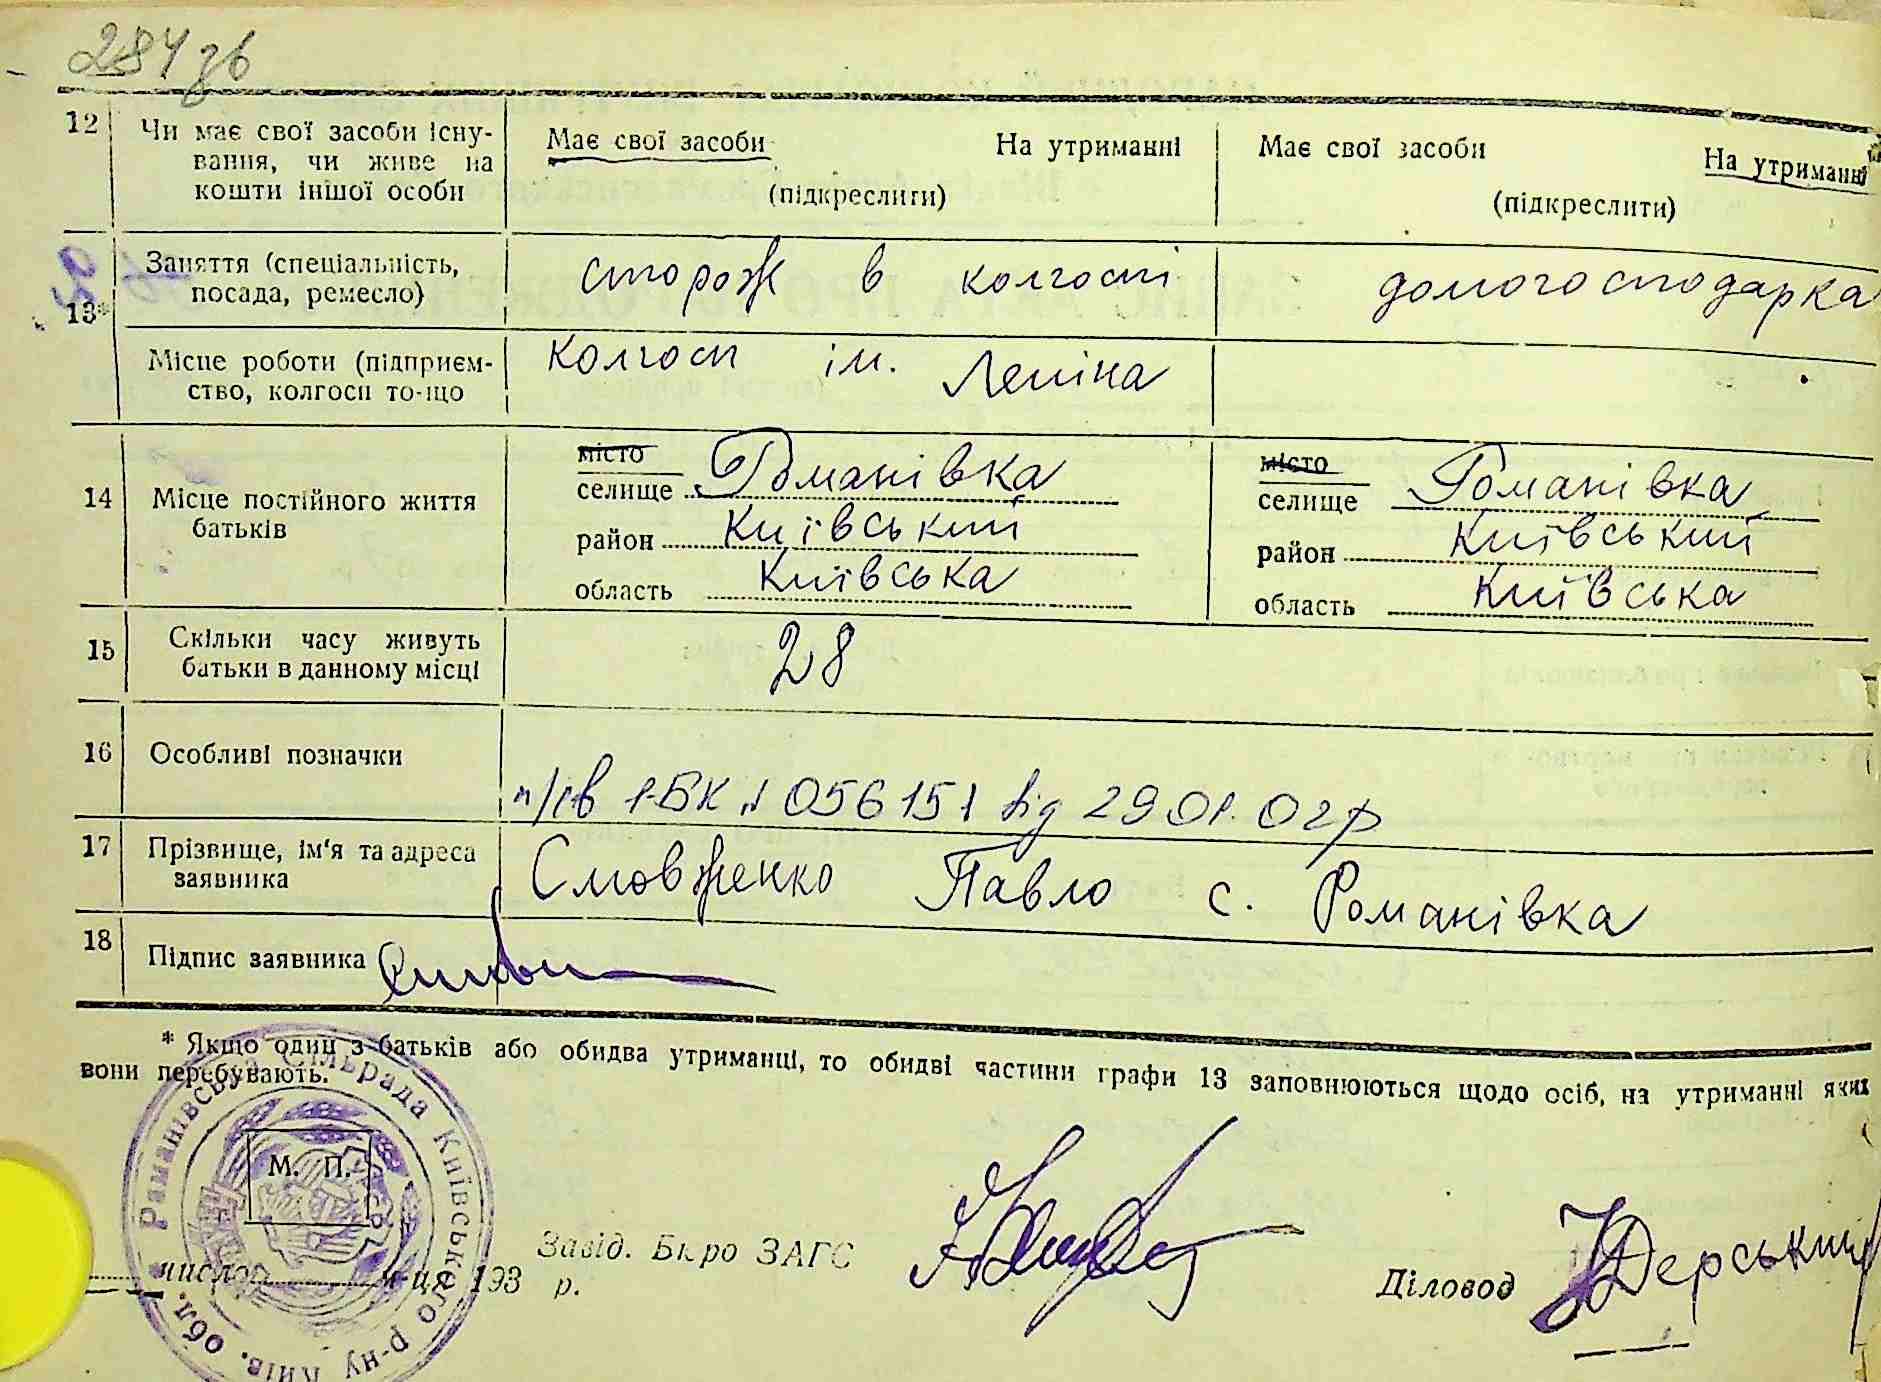 284 зв
12 Чи має свої засоби існу-
вання, чи живе на
кошти іншої особи
Має свої засоби На утриманні
(підкреслити)
Має свої засоби На утриманні
(підкреслити)
13*
Заняття (спеціальність,
посада, ремесло)
сторож в колгоспі
домогосподарка
Місце роботи (підприєм-
ство, колгосп то-що
колгосп ім. Леніна
14 Місце постійного життя
батьків
місто
селище Романівка
район Київський
область Київська
місто
селище Романівка
район Київський
область Київська
15 Скільки часу живуть
батьки в данному місці
28
16 Особливі позначки
п/св І-БК № 056151 від 29.01.02р
17 Прізвище, ім'я та адреса
заявника
Смовженко Павло с. Романівка
18 Підпис заявника
* Якщо один з батьків або обидва утриманці, то обидві частини графи 13 заповнюються щодо осіб, на утриманні яких
вони перебувають.
Раманівська Сільрада Київського р-ну Київ. обл.
М. П.
число м-ця 193 р.
Завід. Бюро ЗАГС
Діловод Дерський